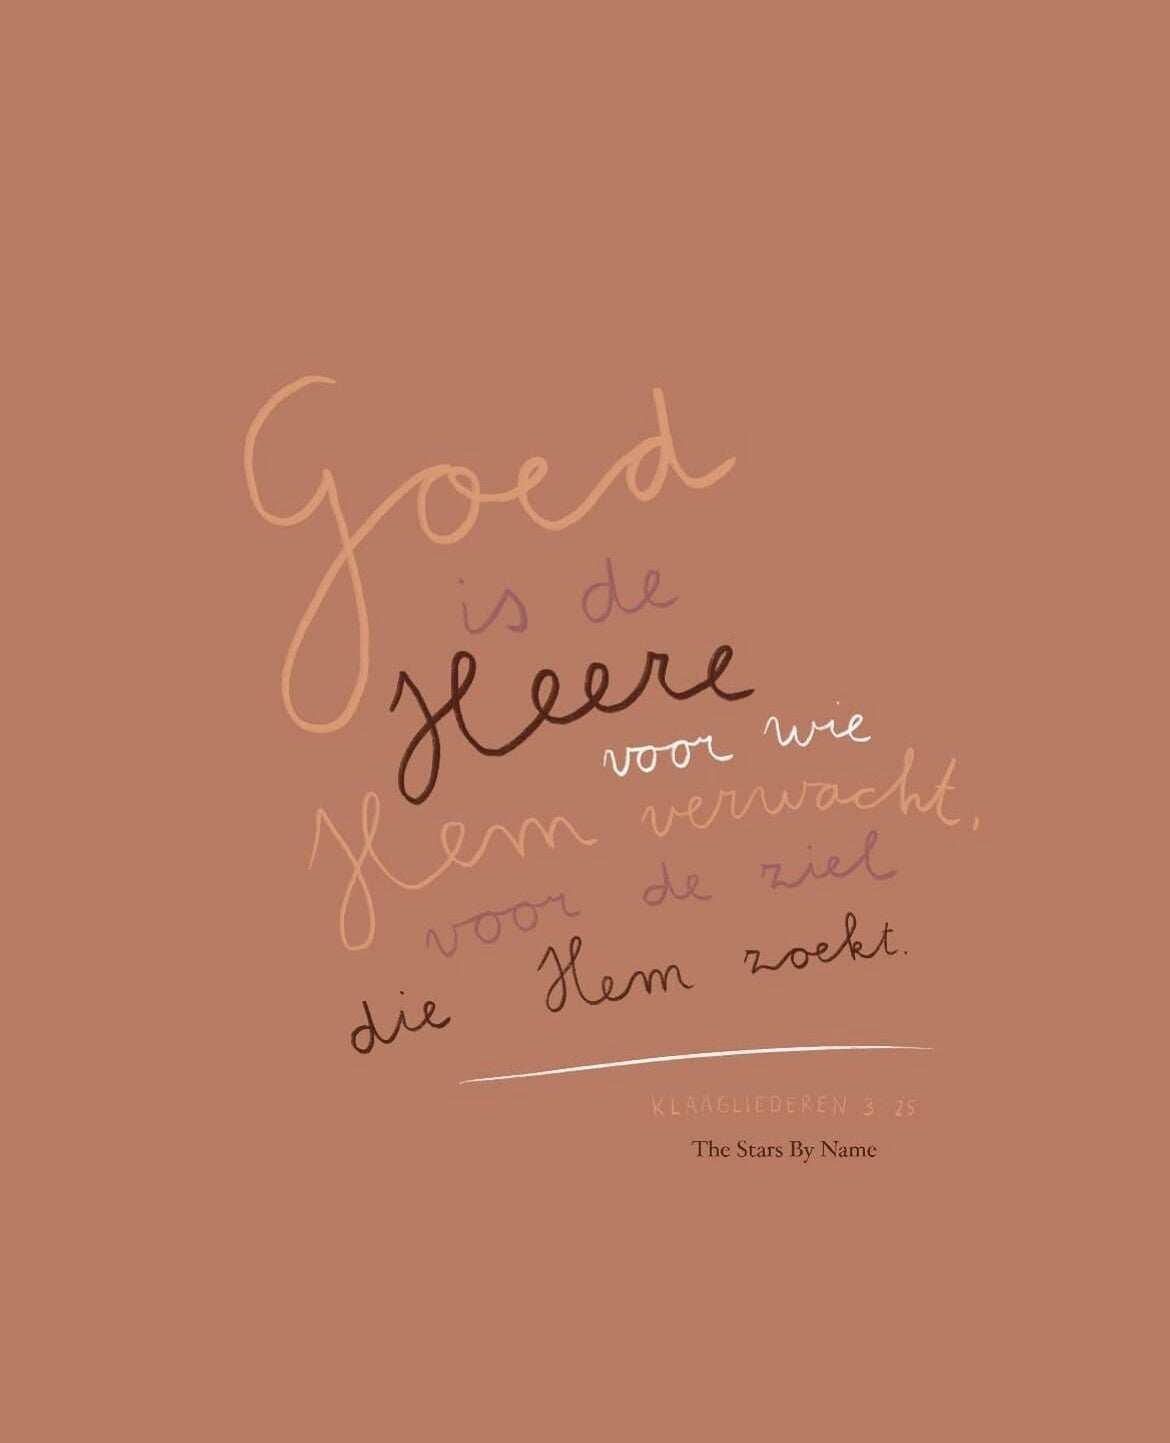 Goed
is de
Heere
voor wie
Hem verwacht,
voor de ziel
die Hem zoekt.
KLAAGLIEDEREN 3:25
The Stars By Name